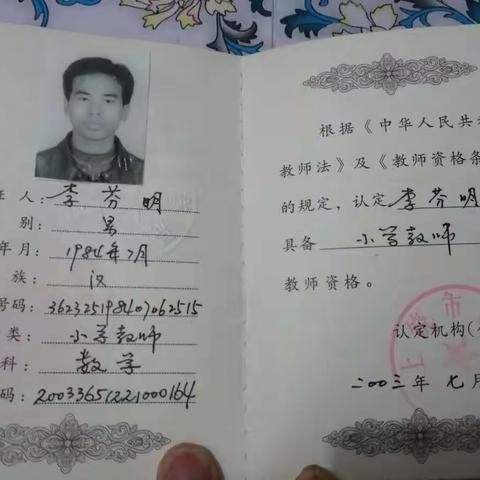 证 人：李芬明
别：男
年 月：1984年7月
族：汉
号码：362325198407062515
类：小学教师
科：数学
码：20033651221000164
根据《中华人民共和
教师法》及《教师资格条
的规定，认定 李芬明
具备 小学教师
教师资格。
认定机构(
二00三年 七月